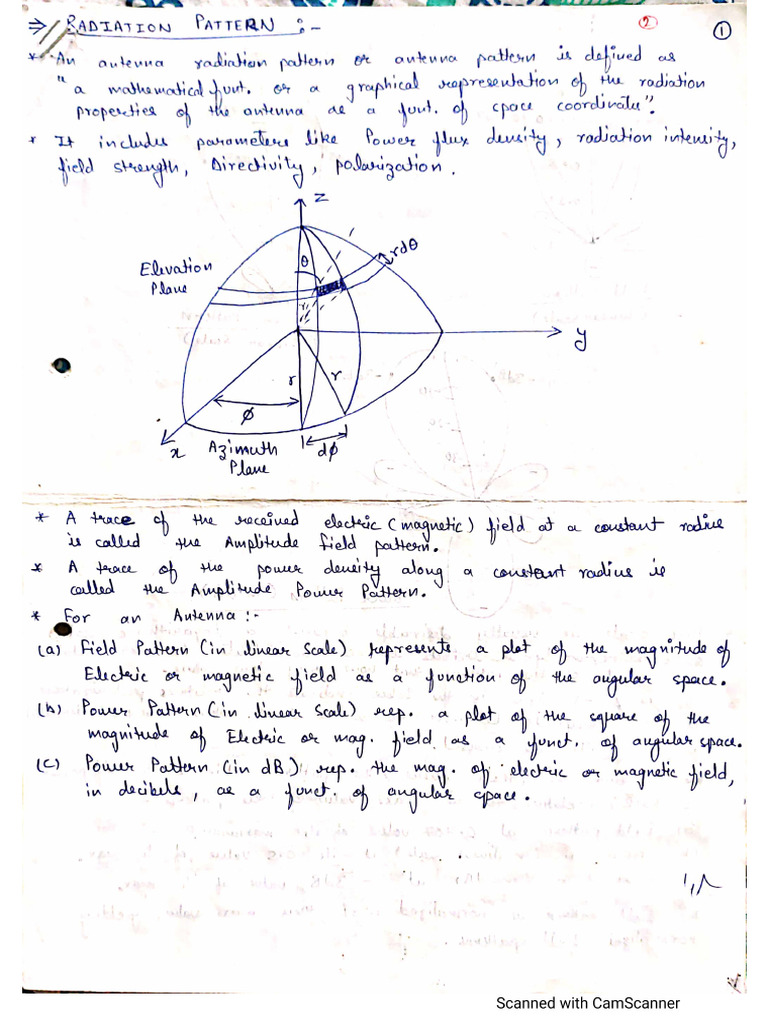 ⇒ RADIATION PATTERN :-
2
1
* An antenna radiation pattern or antenna pattern is defined as
"a mathematical funt. or a graphical representation of the radiation
properties of the antenna as a funt. of space coordinate".
* It includes parameters like Power flux density, radiation intensity,
field strength, Directivity, polarization.
z
θ
rdθ
Elevation
Plane
y
r
r
φ
x
Azimuth
Plane
dφ
* A trace of the received electric (magnetic) field at a constant radius
is called the Amplitude field pattern.
* A trace of the power density along a constant radius is
called the Amplitude Power Pattern.
* For an Antenna :-
(a) Field Pattern (in linear scale) represents a plot of the magnitude of
Electric or magnetic field as a function of the angular space.
(b) Power Pattern (in linear scale) rep. a plot of the square of the
magnitude of Electric or mag. field as a funct. of angular space.
(c) Power Pattern (in dB) rep. the mag. of electric or magnetic field,
in decibels, as a funct. of angular space.
Scanned with CamScanner